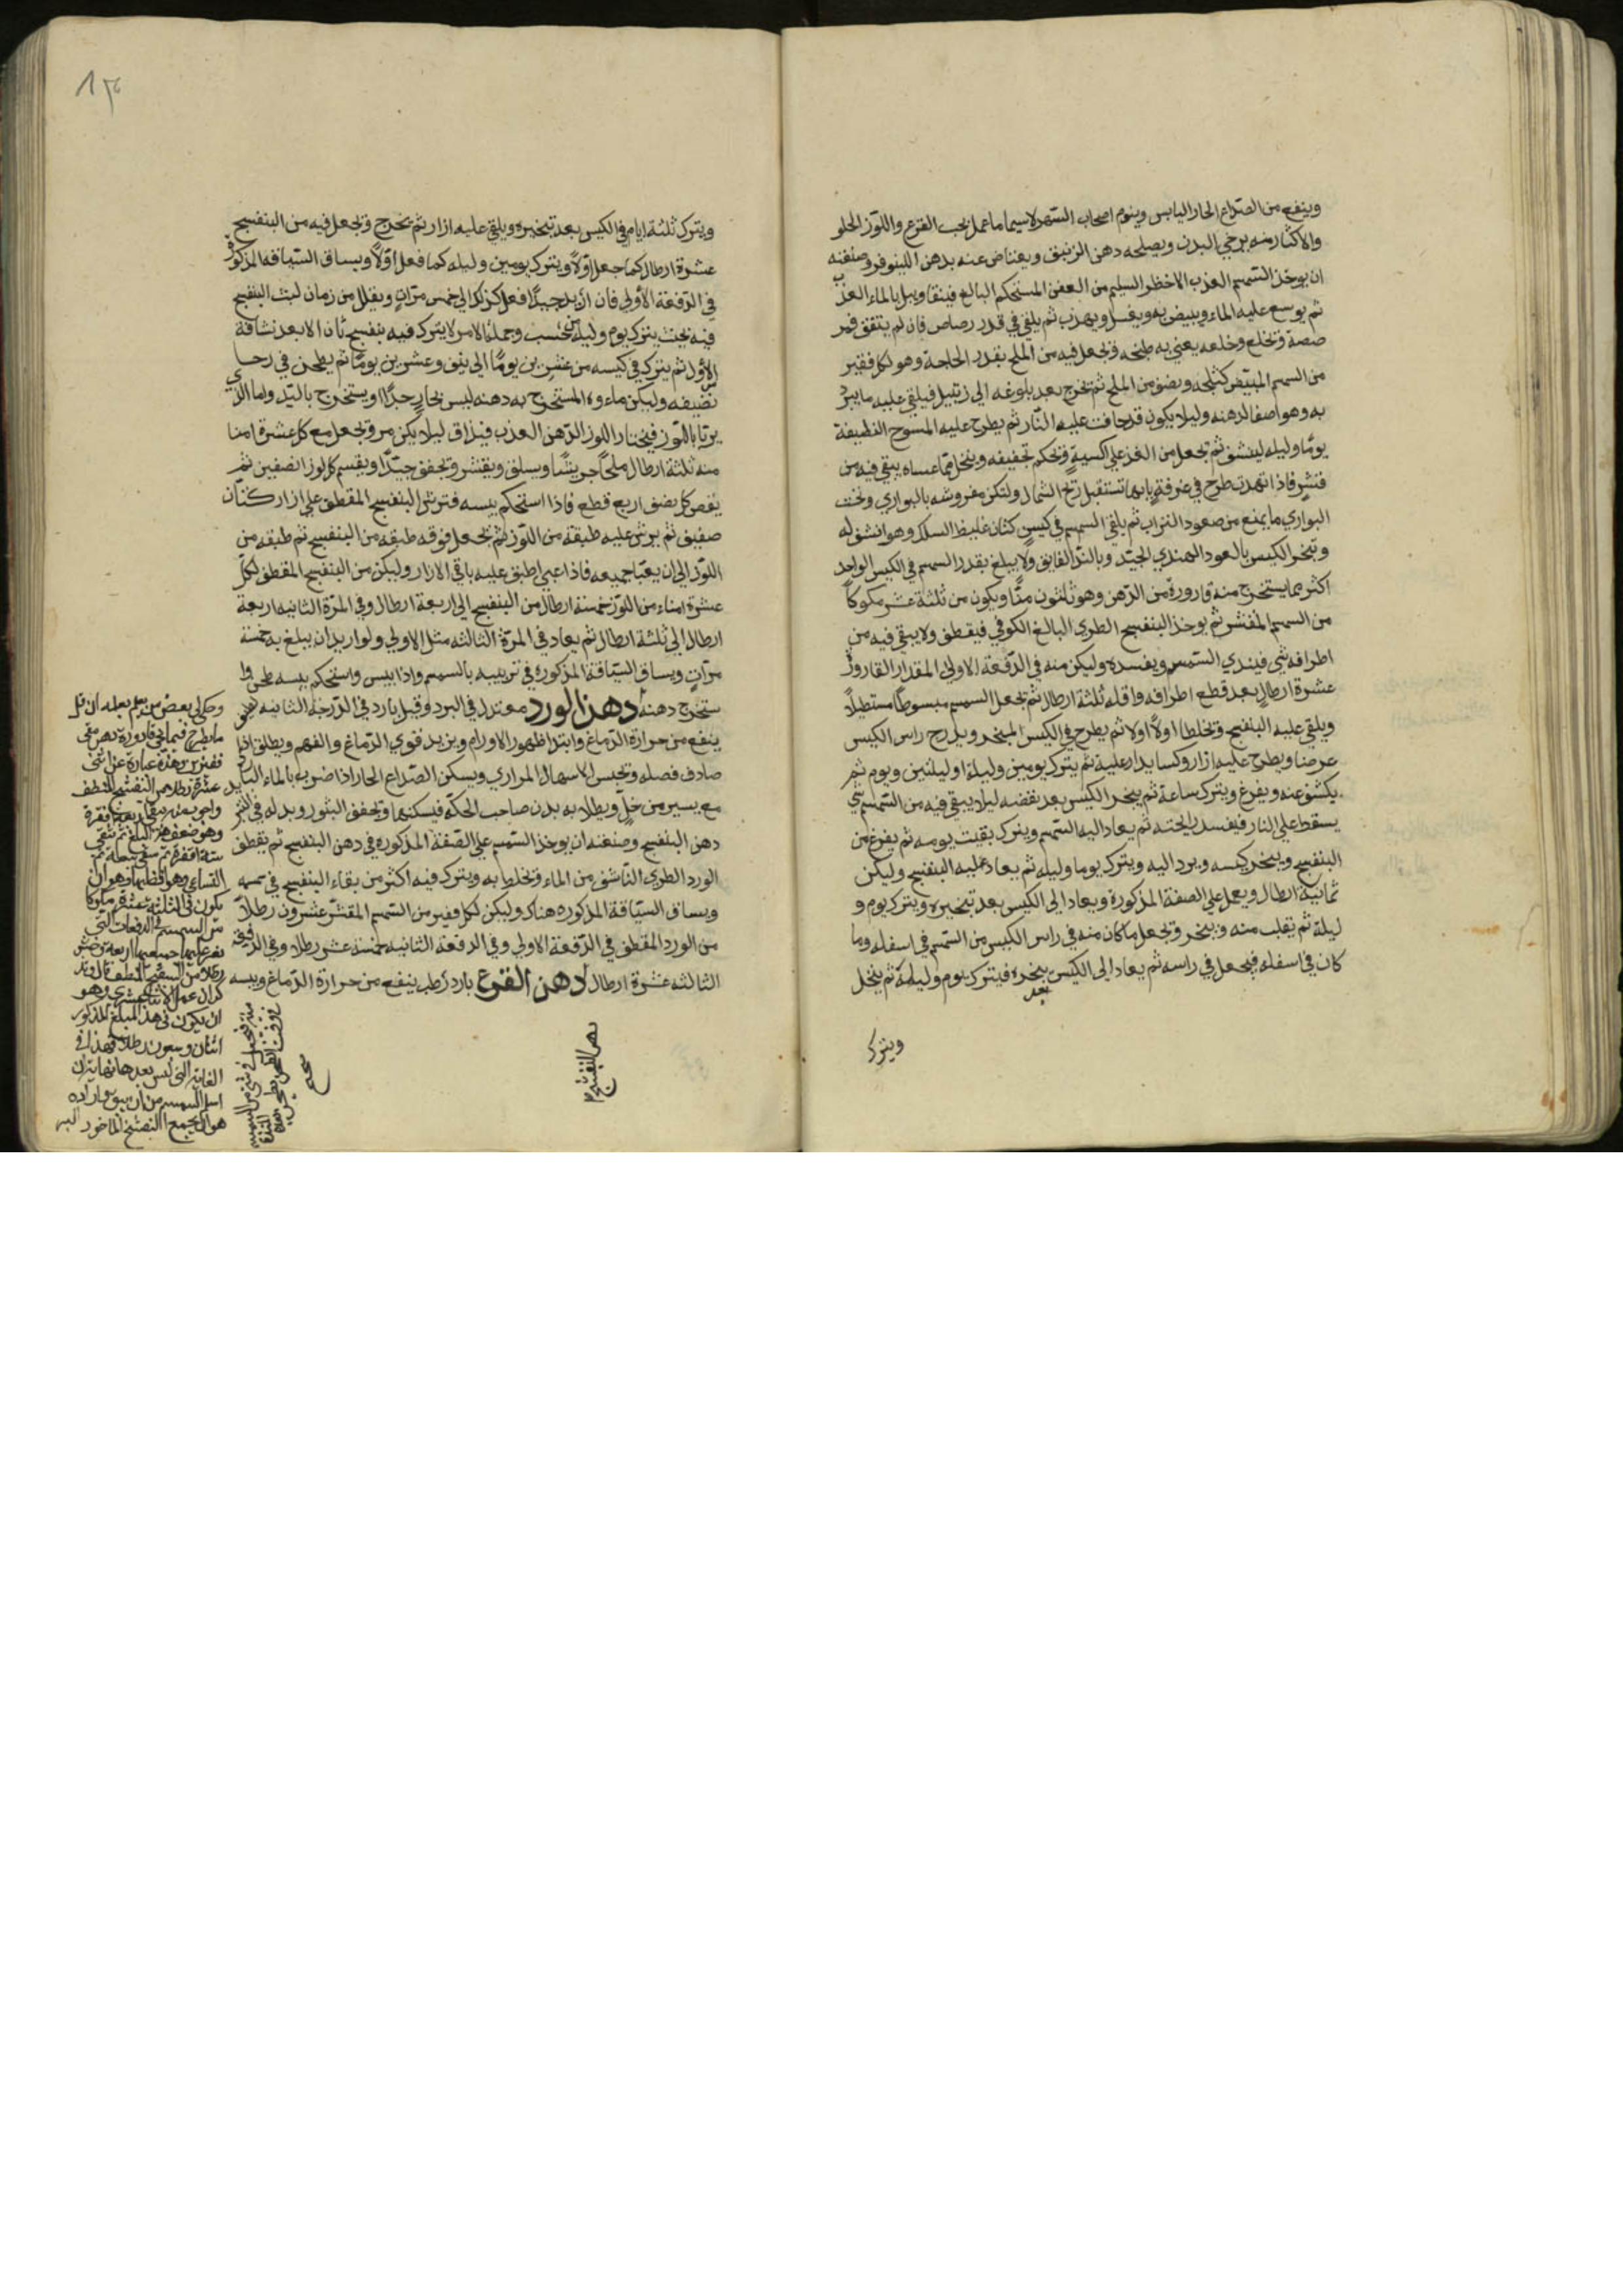 وينفع من الصداع الحار اليابس وينوم اصحاب السهر لاسيما ما عمل بحب القرع واللوز الحلو
والاكثار منه يرخي البدن ويصلحه دهن الزنبق ويعتاض عنه بدهن اللينوفر وصنعته
ان يوخذ السمسم العذب الاخظر السليم من العفن المستحكم البالغ فينقا ويبل بالماء العذب
ثم يوسع عليه الماء ويبيض به ويغسل ويهذب ثم يلقي في قدر رصاص فان لم يتفق فمر
صصة وتخلع وخلعه يعني به طبخه وتجعل فيه من الملح بقدر الحاجة وهو لكل قفيز
من السمسم المبيض كيلجه ونصف من الملح ثم تخرج بعد بلوغه الي زنبيل فيلقي عليه ما يبرد
به وهو اصفا لدهنه وليلا يكون قد جافت عليه النار ثم يطرح عليه المسوح النظيفة
يومًا وليله لينشف ثم تجعل من الغد علي اكسية وتحكم تجفيفه وينخل مما عساه يبقي فيه من
قشر فاذا تهذب طرح في غرفة بابها تستقبل ريح الشمال ولتكن مفروشه بالبواري وتحت
البواري ما يمنع من صعود التراب ثم يلقي السمسم في كيس كتان غليظ السلك وهو انشف له
وتبخر الكيس بالعود الهندي الجيد وبالند الفايق ولا يبلغ بقدر السمسم في الكيس الواحد
اكثر مما يستخرج منه قارورة من الدهن وهو ثلثون منًّا ويكون من ثلثة عشر مكوكاً
من السمسم المقشر ثم يوخذ البنفسج الطري البالغ الكوفي فيقطف ولا يبقي فيه من
اطرافه شي فيندي السمسم ويفسده وليكن منه في الدفعة الاولي المقدار القارورة
عشرة ارطال بعد قطع اطرافه واقله ثلثة ارطال ثم يجعل السمسم مبسوطاً مستطيلاً
ويلقي عليه البنفسج وتخلطا اولاً اولا ثم يطرح في الكيس المبخر ويدرج راس الكيس
عرضا ويطرح عليه ازار وكسا يدار عليه ثم يترك يومين وليلة او ليلتين ويوم ثم
يكشف عنه ويفرغ ويترك ساعة ثم يبخر الكيس بعد نفضه ليلا يبقي فيه من السمسم شي
يسقط علي النار فيفسد رايحته ثم يعاد اليه السمسم ويترك بقيت يومه ثم يفرغ من
البنفسج ويبخر كيسه ويرد اليه ويترك يوما وليله ثم يعاد عليه البنفسج وليكن
ثمانية ارطال ويعمل علي الصفة المذكورة ويعاد الي الكيس بعد تبخيره ويترك يوم و
ليلة ثم يقلب منه ويبخر وتجعل ما كان منه في راس الكيس من السمسم في اسفله وما
كان في اسفله فيجعل في راسه ثم يعاد الي الكيس بعد يبخره فيترك يوم وليلة ثم ينخل
ويترك
ويترك ثلثة ايام في الكيس بعد تبخيره ويلقي عليه ازار ثم يخرج وتجعل فيه من البنفسج
عشرة ارطال كما جعل اولاً ويترك يومين وليله كما فعل اولاً ويساق السياقه المذكورة
في الدفعة الأولي فان اريد جيدًا فعل كذلك الي خمس مرات ويقلل من زمان لبث البنفسج
فيه بحيث يترك يوم وليلة فحسب وجملة الامر لا يترك فيه بنفسج ثان الا بعد نشافة
الأول ثم يترك في كيسه من عشرين يومًا الي نيف وعشرين يومًا ثم يطحن في رحا
نضيفه وليكن ماءوه المستخرج به دهنه ليس بحار جدًا ويستخرج باليد واما الذي
يربا باللوز فيختار اللوز الدهن العذب فيذاق ليلا يكن مر وتجعل مع كل عشرة امنا
منه ثلثة ارطال ملحاً جريشًا ويسلق ويقشر وتجفف جيدًا ويقسم كل لوز نصفين ثم
يقص كل نصف اربع قطع فاذا استحكم يبسه فترش البنفسج المقطف علي ازار كتان
صفيق ثم يرش عليه طبقة من اللوز ثم تجعل فوقه طبقه من البنفسج ثم طبقه من
اللوز الي ان يعبا جميعه فاذا عبي اطبق عليه باقي الازار وليكن من البنفسج المقطف لكل
عشرة امناء من اللوز خمسة ارطال من البنفسج الي اربعة ارطال وفي المرة الثانيه اربعة
ارطال الي ثلثة ارطال ثم يعاد في المرة الثالثه مثل الاولي ولو اريد ان يبلغ به خمسة
مرات ويساق السياقة المذكوره في تربيبه بالسمسم واذا يبس واستحكم يبسه طحن وا
ستخرج دهنه دهن الورد معتدل في البرد وقيل بارد في الدرجه الثانيه
ينفع من حرارة الدماغ وابتدا ظهور الاورام ويزيد قوي الدماغ والفهم ويطلق اذا
صادف فضله وتحبس الاسهال المراري ويسكن الصداع الحار اذا ضرب بالماء البارد
مع يسير من خل ويطلا به بدن صاحب الحكة فيسكنها وتجفف البثور وبدله
دهن البنفسج وصنعته ان يوخذ السمسم علي الصفة المذكوره في دهن البنفسج ثم يقطف
الورد الطري الناشف من الماء وتخلط به ويترك فيه اكثر من بقاء البنفسج في سمسمه
ويساق السياقة المذكوره هناك وليكن لكل قفيز من السمسم المقشر عشرون رطلاً
من الورد المقطف في الدفعة الاولي وفي الدفعة الثانيه خمسة عشر رطلا وفي الدفعة
الثالثه عشرة ارطال دهن القرع بارد رطب ينفع من حرارة الدماغ ويبسه
دهن البنفسج
وحكي بعض من
ما يطرح
قفيزين وهذه عبارة عن
عشرة رطلا من البنفسج المقطف
وهو ضعف هذا المبلغ ثم
يكون في الثلثة عشر مكوكا
من السمسم في الدفعات التي
رطلا من البنفسج المقطف قال وقد
كان عمل
ان يكون في هذا المبلغ المذكور
اثنان وسبعون رطلا فهذا في
الغاية التي ليس بعدها نهاية